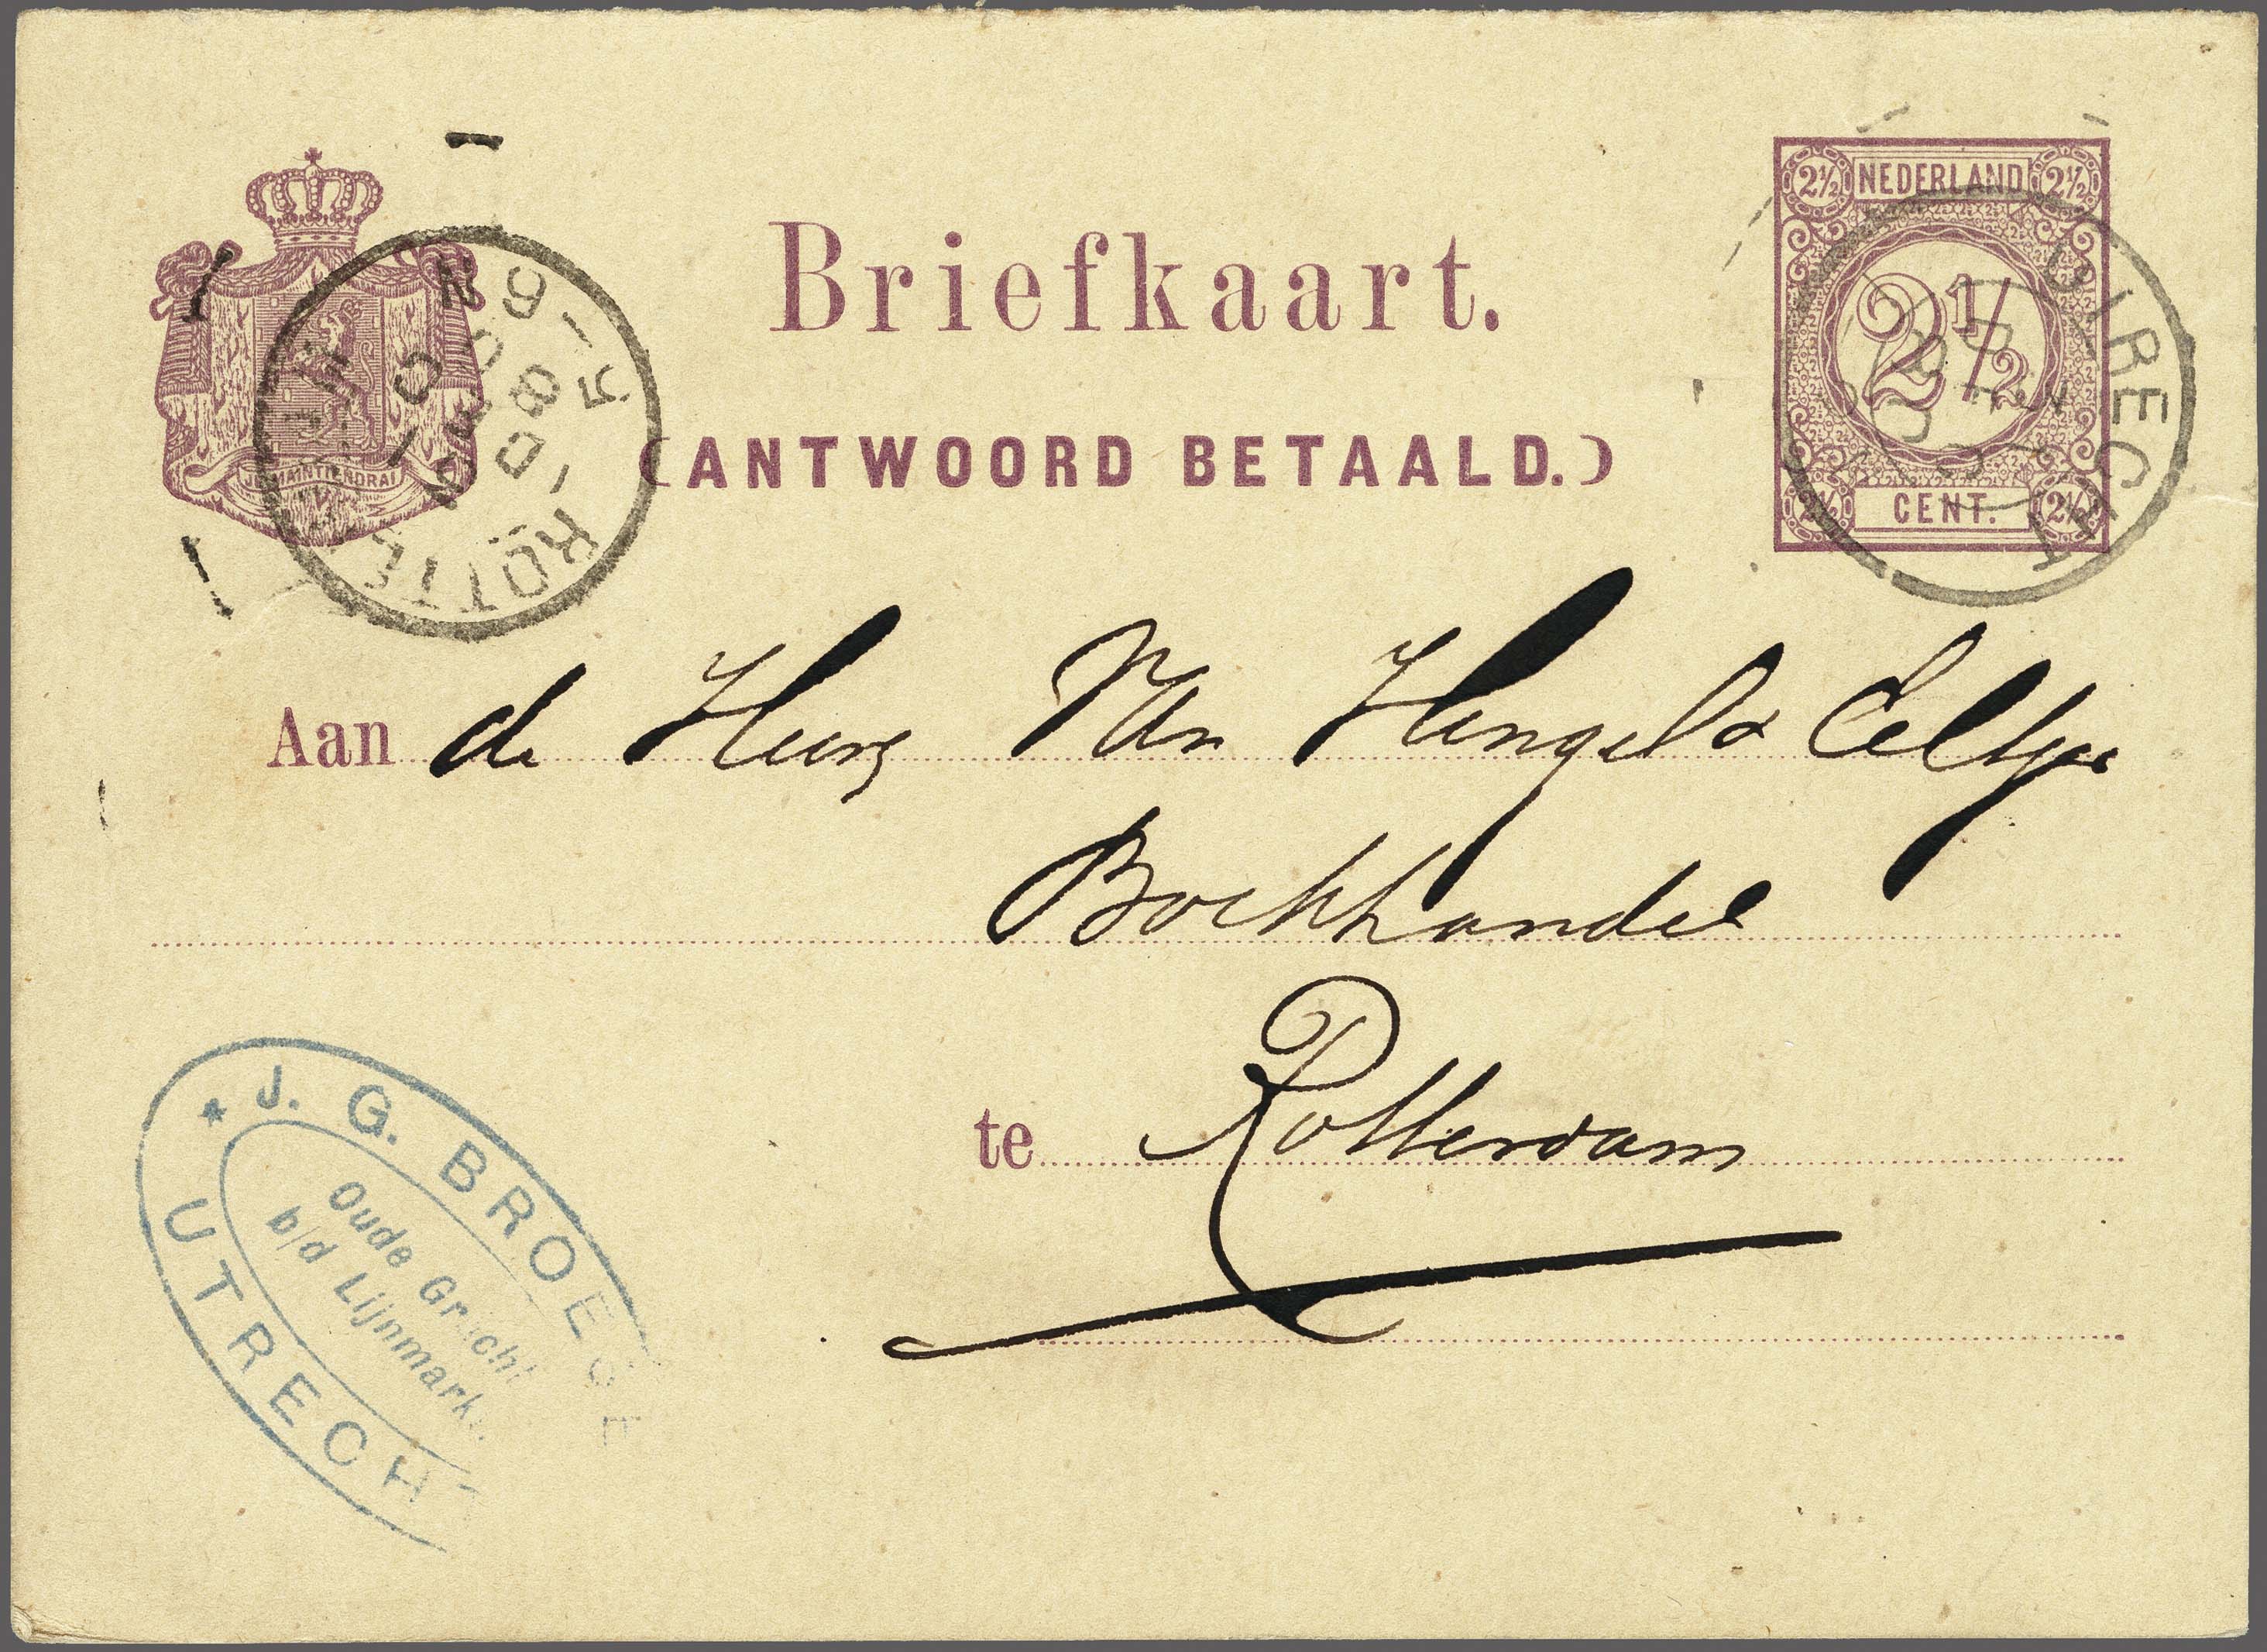 Briefkaart.
(ANTWOORD BETAALD.)
JE MAINTIENDRAI
2½ NEDERLAND 2½
2½
2½ CENT. 2½
ROTTE
OCT
Aan de Heer Van Hengel & Eeltjes
Boekhandel
te Rotterdam
* J. G. BROESE
Oude Gracht
b/d Lijnmarkt
UTRECHT